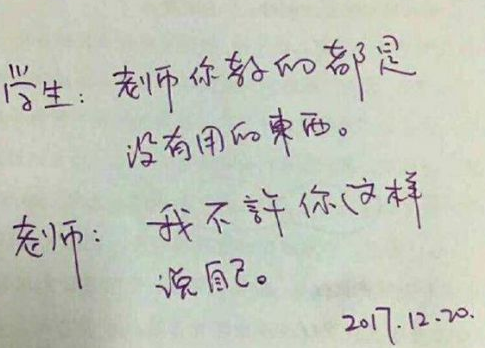 学生：老师你教的都是
没有用的東西。
老师：我不許你这样
说自己。
2017.12.20.